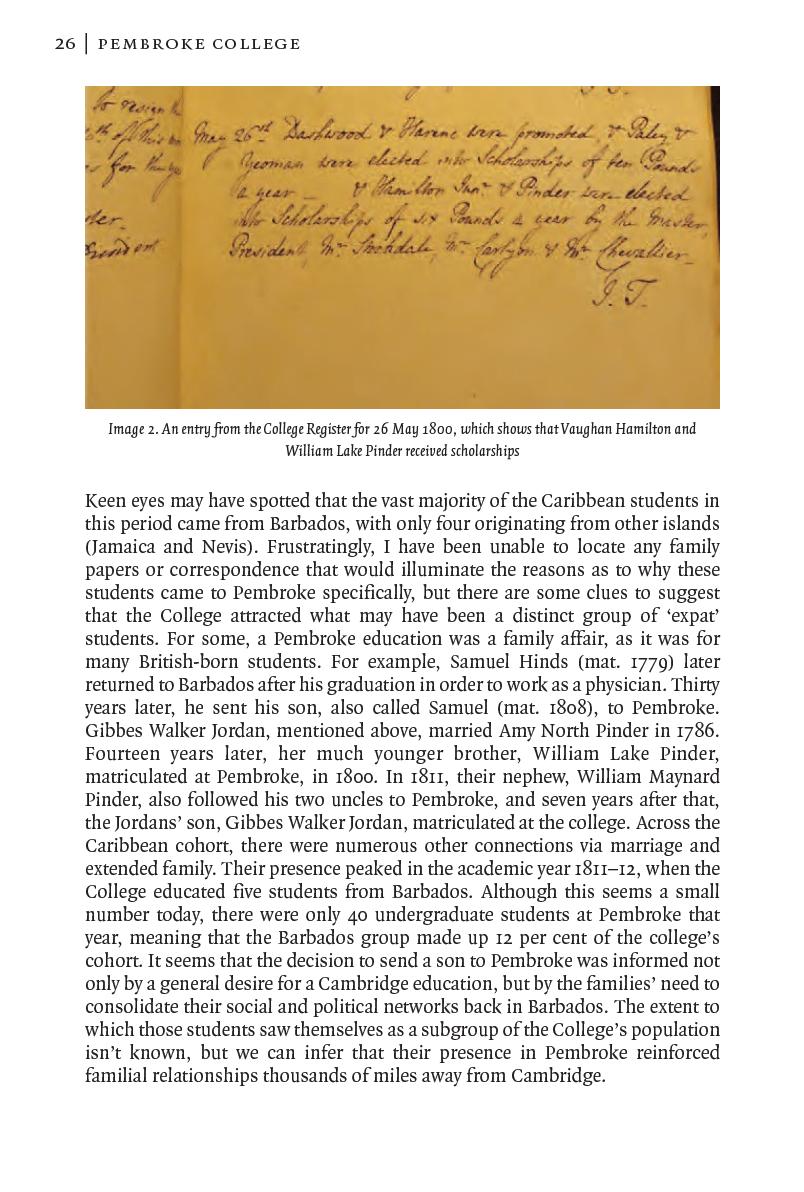 26 | PEMBROKE COLLEGE
to resign the
6th of this
May 26th Dashwood & Harene were promoted, & Paley &
for the
Yeoman were elected into Scholarships of ten Pounds
a year — & Hamilton Junr & Pinder were elected
into Scholarships of six Pounds a year by the Master,
President, Mr Stockdale, Mr Carlyon & Mr Chevallier
J. T.
Image 2. An entry from the College Register for 26 May 1800, which shows that Vaughan Hamilton and
William Lake Pinder received scholarships
Keen eyes may have spotted that the vast majority of the Caribbean students in
this period came from Barbados, with only four originating from other islands
(Jamaica and Nevis). Frustratingly, I have been unable to locate any family
papers or correspondence that would illuminate the reasons as to why these
students came to Pembroke specifically, but there are some clues to suggest
that the College attracted what may have been a distinct group of ‘expat’
students. For some, a Pembroke education was a family affair, as it was for
many British-born students. For example, Samuel Hinds (mat. 1779) later
returned to Barbados after his graduation in order to work as a physician. Thirty
years later, he sent his son, also called Samuel (mat. 1808), to Pembroke.
Gibbes Walker Jordan, mentioned above, married Amy North Pinder in 1786.
Fourteen years later, her much younger brother, William Lake Pinder,
matriculated at Pembroke, in 1800. In 1811, their nephew, William Maynard
Pinder, also followed his two uncles to Pembroke, and seven years after that,
the Jordans’ son, Gibbes Walker Jordan, matriculated at the college. Across the
Caribbean cohort, there were numerous other connections via marriage and
extended family. Their presence peaked in the academic year 1811–12, when the
College educated five students from Barbados. Although this seems a small
number today, there were only 40 undergraduate students at Pembroke that
year, meaning that the Barbados group made up 12 per cent of the college’s
cohort. It seems that the decision to send a son to Pembroke was informed not
only by a general desire for a Cambridge education, but by the families’ need to
consolidate their social and political networks back in Barbados. The extent to
which those students saw themselves as a subgroup of the College’s population
isn’t known, but we can infer that their presence in Pembroke reinforced
familial relationships thousands of miles away from Cambridge.